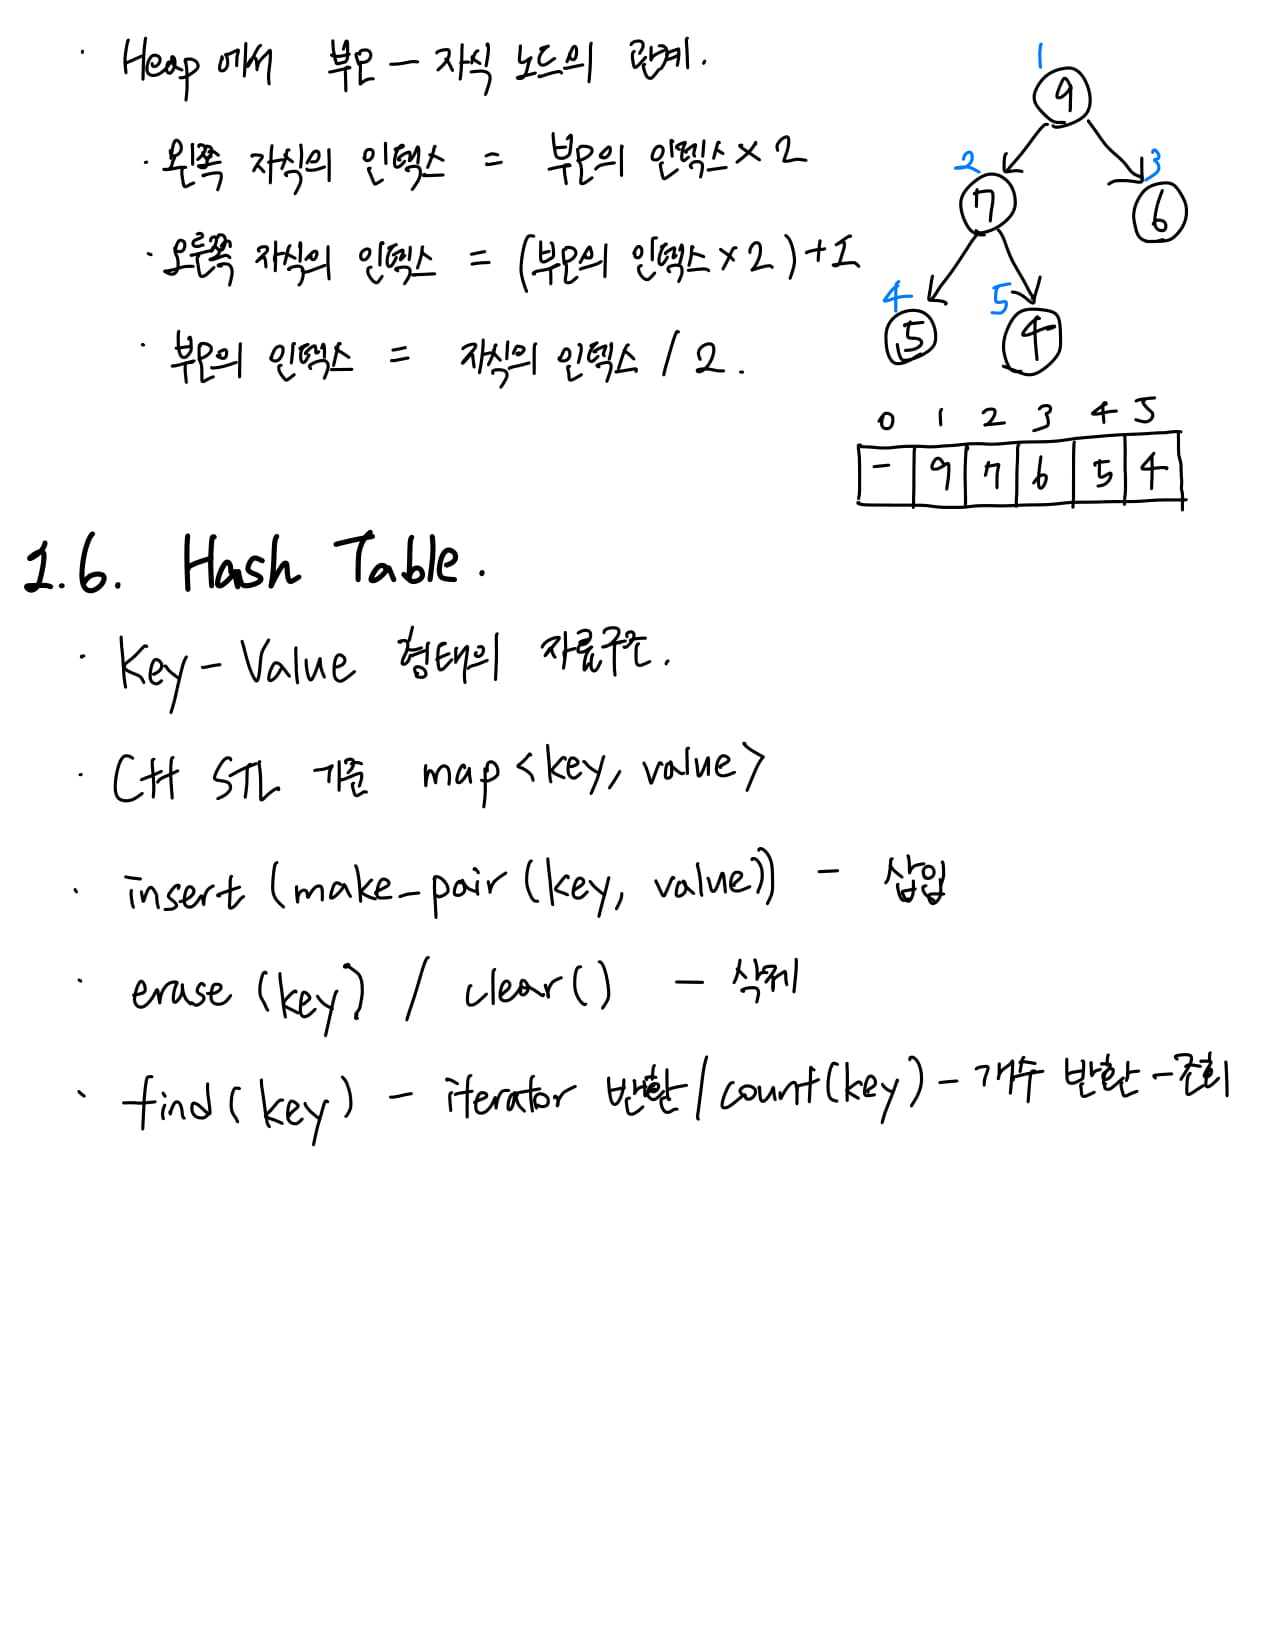 · Heap에서 부모 - 자식 노드의 관계.
· 왼쪽 자식의 인덱스 = 부모의 인덱스 × 2
· 오른쪽 자식의 인덱스 = (부모의 인덱스 × 2) + 1
· 부모의 인덱스 = 자식의 인덱스 / 2.
1
9
2 3
7 6
4 5
5 4
0 1 2 3 4 5
- 9 7 6 5 4
1.6. Hash Table.
· Key - Value 형태의 자료구조.
· C++ STL 기준 map <key, value>
· insert (make_pair (key, value)) - 삽입
· erase (key) / clear() - 삭제
· find (key) - iterator 반환 / count(key) - 개수 반환 - 조회